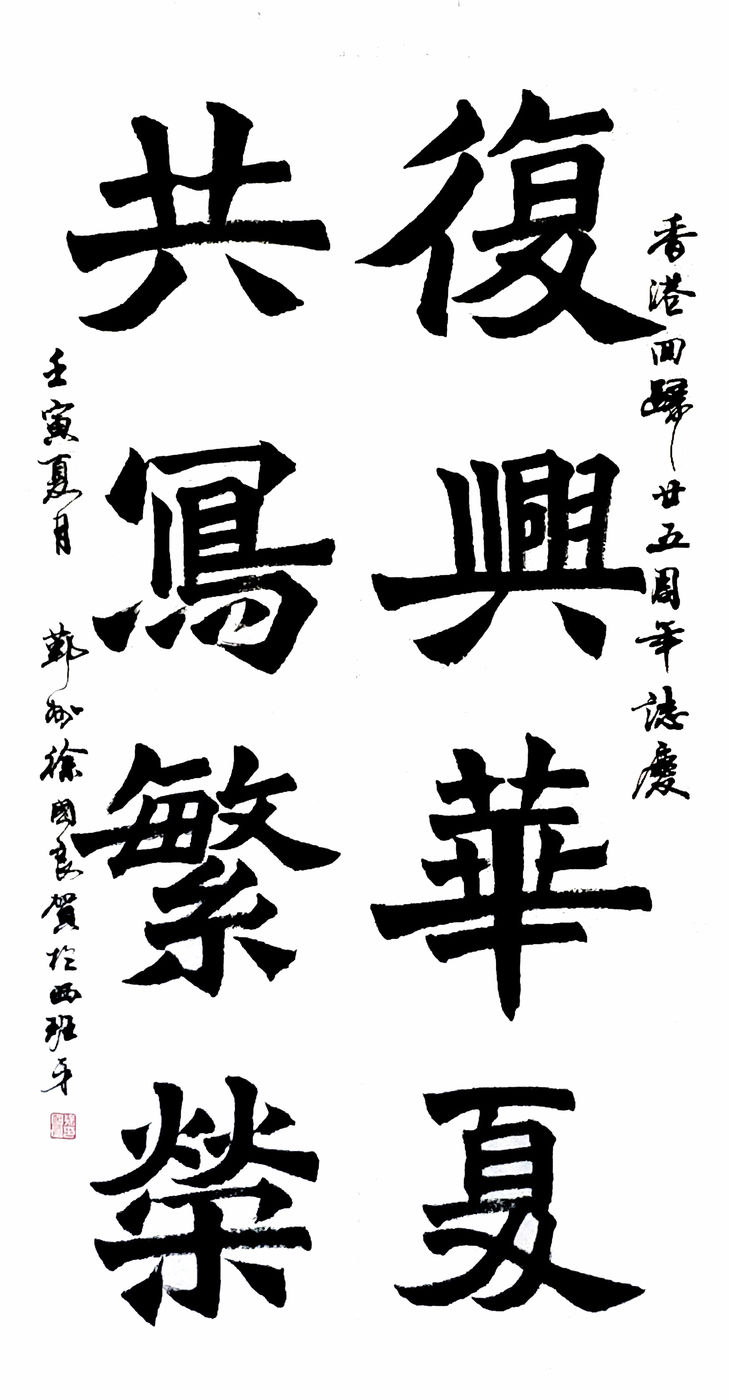 香港回歸廿五周年誌慶
復興華夏
共寫繁榮
壬寅夏月 蘄州徐國良賀於西班牙